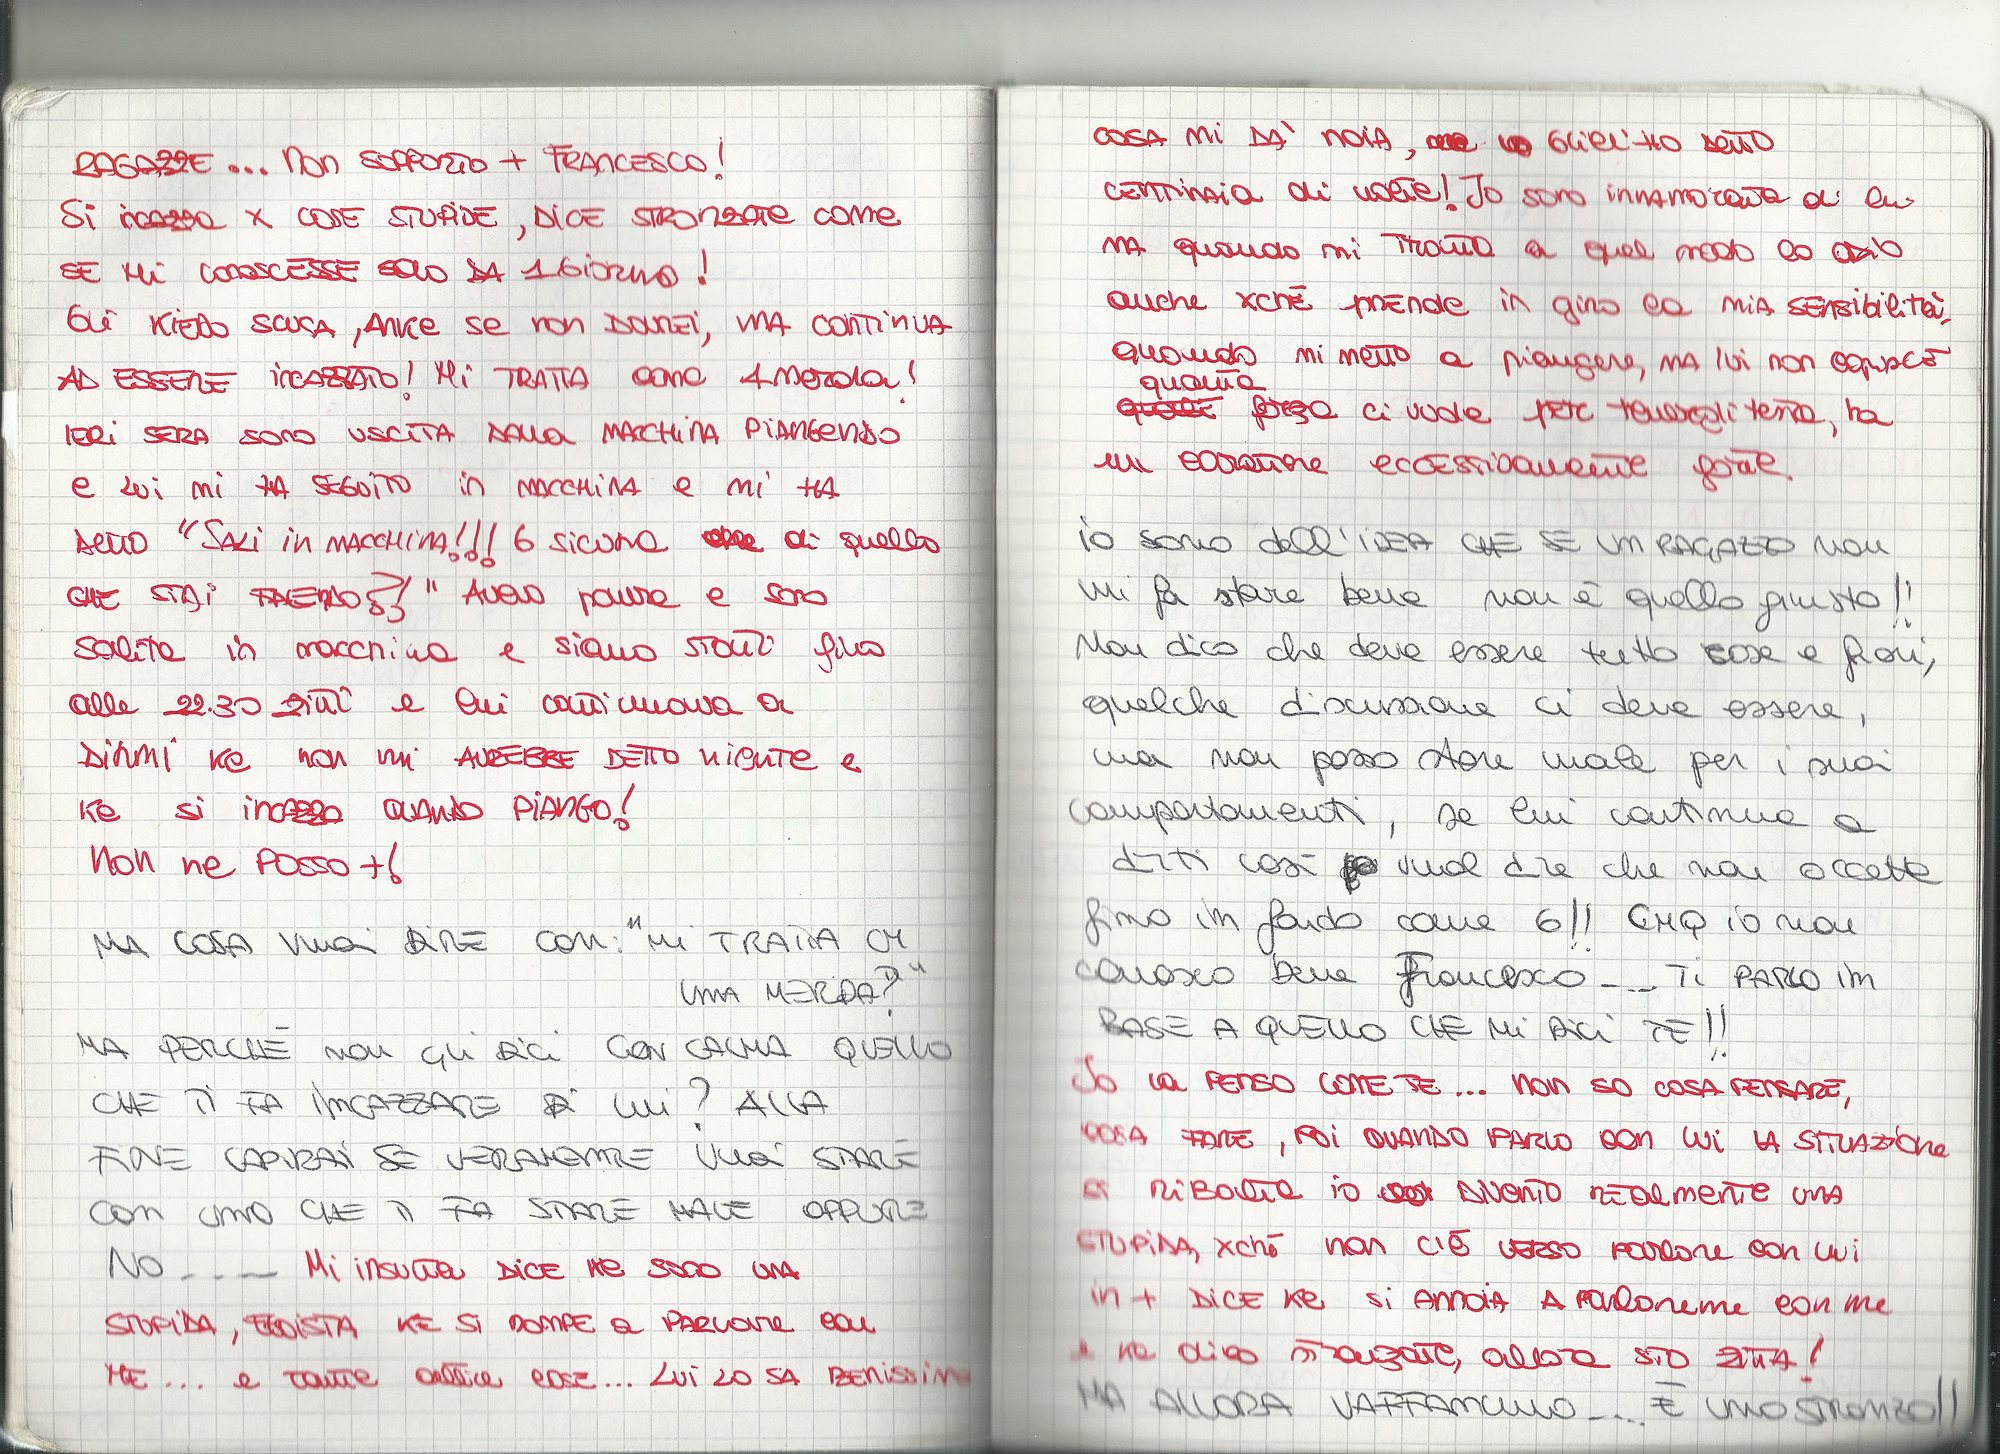 RAGAZZE... NON SOPPORTO + FRANCESCO!
Si incazza x COSE STUPIDE, DICE STRONZATE come
SE MI CONOSCESSE SOLO DA 1 GiORNO!
Gli KIEDO SCUSA, ANKE se non DOVREI, MA CONTINUA
AD ESSERE incazzATO! Mi TRATTA come 1 merda!
IERI SERA SONO USCITA DALLA MACCHINA PIANGENDO
e LUI mi HA SEGUITO in MACCHINA e mi HA
DETTO "SALI in MACCHINA!!! 6 sicura di quello
CHE STAI FACENDO??" Avevo paura e sono
salita in macchina e siamo stati fino
alle 22.30 zitti e lui continuava a
DIRMI ke non mi AVREBBE DETTO niente e
ke si incazza QUANDO PIANGO!
Non ne POSSO +!
MA COSA VUOI DIRE CON: "MI TRATTA COME
UNA MERDA?"
MA PERCHÈ non gli DICI CON CALMA QUELLO
CHE TI FA INCAZZARE DI LUI? ALLA
FINE CAPIRAI SE VERAMENTE VUOI STARE
CON UNO CHE TI FA STARE MALE OPPURE
NO.... Mi insulta DICE ke sono UNA
STUPIDA, EGOISTA KE SI ROMPE a PARLARE con
ME... e tante altre cose... LUI LO SA BENISSIMO
COSA mi DA' NOIA, GLIEL'HO DETTO
CENTINAIA di volte! Io sono innamorata di lui
MA quando mi TRATTA a quel modo lo odio
anche xchè prende in giro la MIA SENSIBILITà,
quando mi metto a piangere, MA LUI non capisce
quanta
forza ci vuole per tenergli testa, ha
un carattere eccessivamente forte.
io sono dell'IDEA CHE SE UN RAGAZZO non
mi fa stare bene non è quello giusto!!
Non dico che deve essere tutto rose e fiori,
qualche discussione ci deve essere,
ma non posso stare male per i suoi
comportamenti, se lui continua a
dirti così vuol dire che non accetta
fino in fondo come 6!! CMQ io non
conosco bene Francesco... TI PARLO IN
BASE A QUELLO CHE MI DICI TE!!
Io la PENSO COME TE... NON SO COSA PENSARE,
COSA FARE, POI QUANDO PARLO con LUI LA SITUAZIONe
si RiBalta io DIVENTO realmente UNA
STUPIDA, xchè non c'è VERSO parlare con lui
in + DICE Ke si ANNOIA A parlarne con me
e ke dico stronzate, allora STO ZITTA!
MA ALLORA VAFFANCULO.... È UNO STRONZO!!